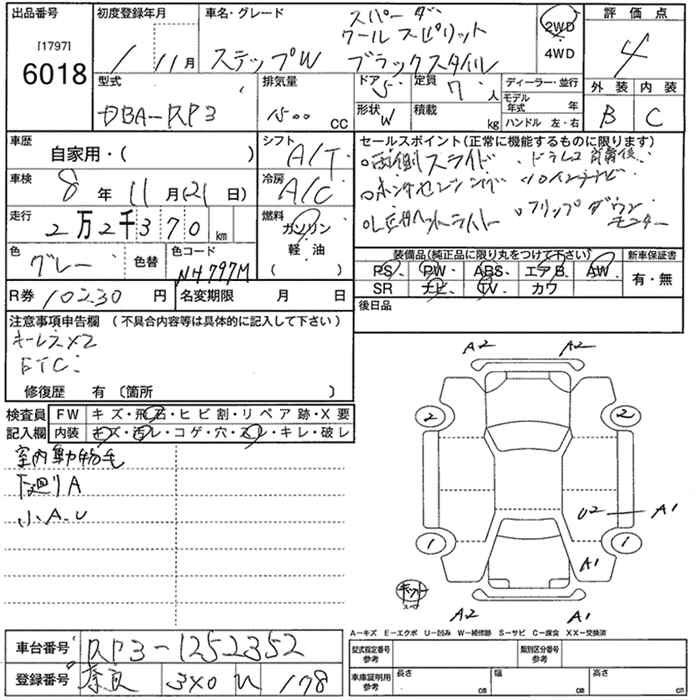 出品番号
[1797]
6018
初度登録年月
1 / 11月
車名・グレード
スパーダ
クールスピリット
ステップW ブラックスタイル
2WD
4WD
評価点
4
外装 内装
B C
型式
DBA-RP3
排気量
1500 cc
ドア 5
定員 7 人
形状 W
積載 kg
ディーラー・並行
モデル年式 年
ハンドル 左・右
車歴
自家用・( )
シフト
A/T
車検
8年 11月(21日)
冷房
A/C
走行
2万2千370 km
燃料
ガソリン
軽・油
( )
色
グレー
色替
色コード
NH797M
R券 10230 円
名変期限 月 日
セールスポイント(正常に機能するものに限ります)
○両側スライド ・ドラレコ前後
○ホンダセンシング ・10インチナビ
○LEDヘッドライト ・フリップダウンモニター
装備品(純正品に限り丸をつけて下さい)
PS、 PW、 ABS、 エアB、 AW、
SR ナビ TV、 カワ
新車保証書
有・無
後日品
注意事項申告欄 (不具合内容等は具体的に記入して下さい)
キーレス×2
ETC
修復歴 有 〔箇所 〕
検査員記入欄
FW キズ・飛石・ヒビ割・リペア跡・X要
内装 キズ・汚レ・コゲ・穴・スレ・キレ・破レ
室内動物毛
下廻りA
小A.U
A2 A2
2 2
U2 A1
1 1
A1
キット
A2 A1
A－キズ E－エクボ U－凹み W－補修跡 S－サビ C－腐食 XX－交換済
車台番号 RP3-1252352
登録番号 奈良 3×0 178
型式指定番号 参考
類別区分番号 参考
車庫証明用 参考
長さ cm
幅 cm
高さ cm